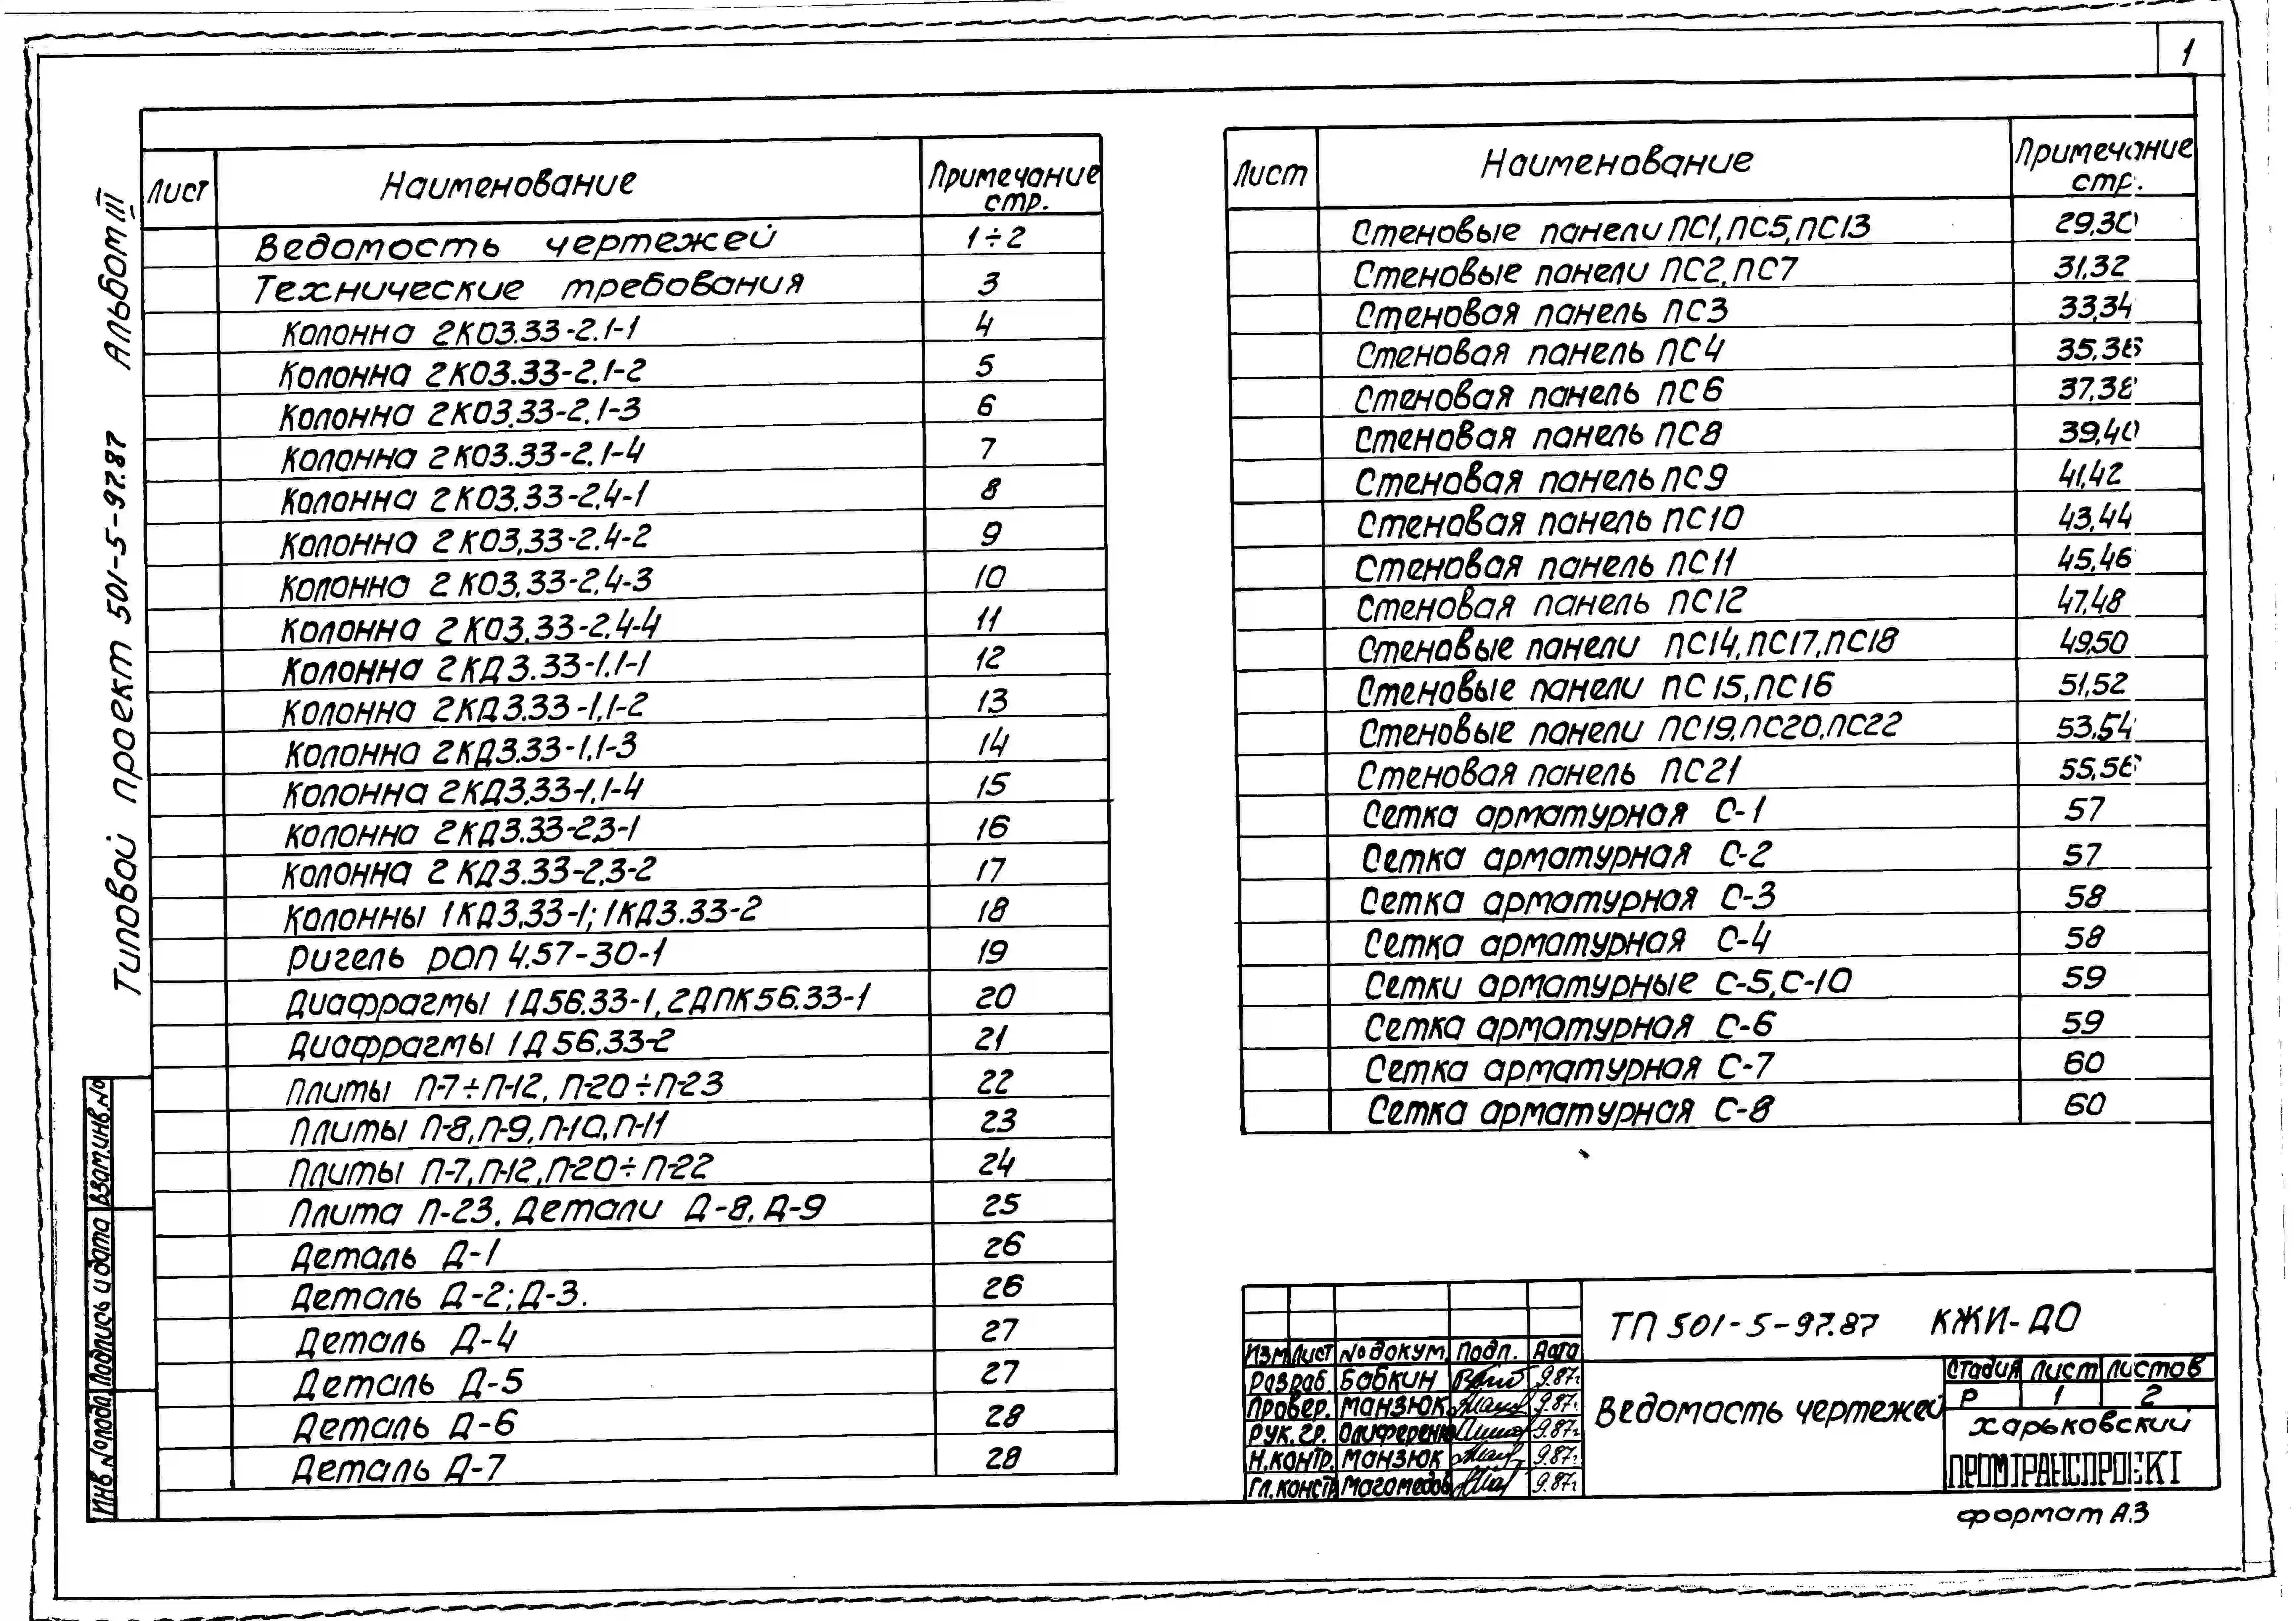 1
Типовой проект 501-5-97.87 Альбом III
Лист Наименование Примечание стр.
Ведомость чертежей 1÷2
Технические требования 3
Колонна 2КО3.33-2.1-1 4
Колонна 2КО3.33-2.1-2 5
Колонна 2КО3.33-2.1-3 6
Колонна 2КО3.33-2.1-4 7
Колонна 2КО3.33-2.4-1 8
Колонна 2КО3.33-2.4-2 9
Колонна 2КО3.33-2.4-3 10
Колонна 2КО3.33-2.4-4 11
Колонна 2КД3.33-1.1-1 12
Колонна 2КД3.33-1.1-2 13
Колонна 2КД3.33-1.1-3 14
Колонна 2КД3.33-1.1-4 15
Колонна 2КД3.33-2.3-1 16
Колонна 2КД3.33-2.3-2 17
Колонны 1КД3.33-1; 1КД3.33-2 18
Ригель РОП 4.57-30-1 19
Диафрагмы 1Д56.33-1, 2ДПК56.33-1 20
Диафрагмы 1Д56.33-2 21
Плиты П-7÷П-12, П-20÷П-23 22
Плиты П-8, П-9, П-10, П-11 23
Плиты П-7, П-12, П-20÷П-22 24
Плита П-23. Детали Д-8, Д-9 25
Деталь Д-1 26
Деталь Д-2; Д-3. 26
Деталь Д-4 27
Деталь Д-5 27
Деталь Д-6 28
Деталь Д-7 28
Лист Наименование Примечание стр.
Стеновые панели ПС1, ПС5, ПС13 29,30
Стеновые панели ПС2, ПС7 31,32
Стеновая панель ПС3 33,34
Стеновая панель ПС4 35,36
Стеновая панель ПС6 37,38
Стеновая панель ПС8 39,40
Стеновая панель ПС9 41,42
Стеновая панель ПС10 43,44
Стеновая панель ПС11 45,46
Стеновая панель ПС12 47,48
Стеновые панели ПС14, ПС17, ПС18 49,50
Стеновые панели ПС15, ПС16 51,52
Стеновые панели ПС19, ПС20, ПС22 53,54
Стеновая панель ПС21 55,56
Сетка арматурная С-1 57
Сетка арматурная С-2 57
Сетка арматурная С-3 58
Сетка арматурная С-4 58
Сетки арматурные С-5, С-10 59
Сетка арматурная С-6 59
Сетка арматурная С-7 60
Сетка арматурная С-8 60
Инв. № подл. Подпись и дата Взам. инв. №
ТП 501-5-97.87 КЖИ-ДО
Изм Лист № докум. Подп. Дата
Разраб. Бабкин 9.87г.
Провер. Манзюк 9.87г.
Рук. гр. Олиференко 9.87г.
Н.контр. Манзюк 9.87г.
Гл.констр Магомедов 9.87г.
Ведомость чертежей
Стадия Лист Листов
Р 1 2
Харьковский
ПРОМТРАНСПРОЕКТ
формат А3